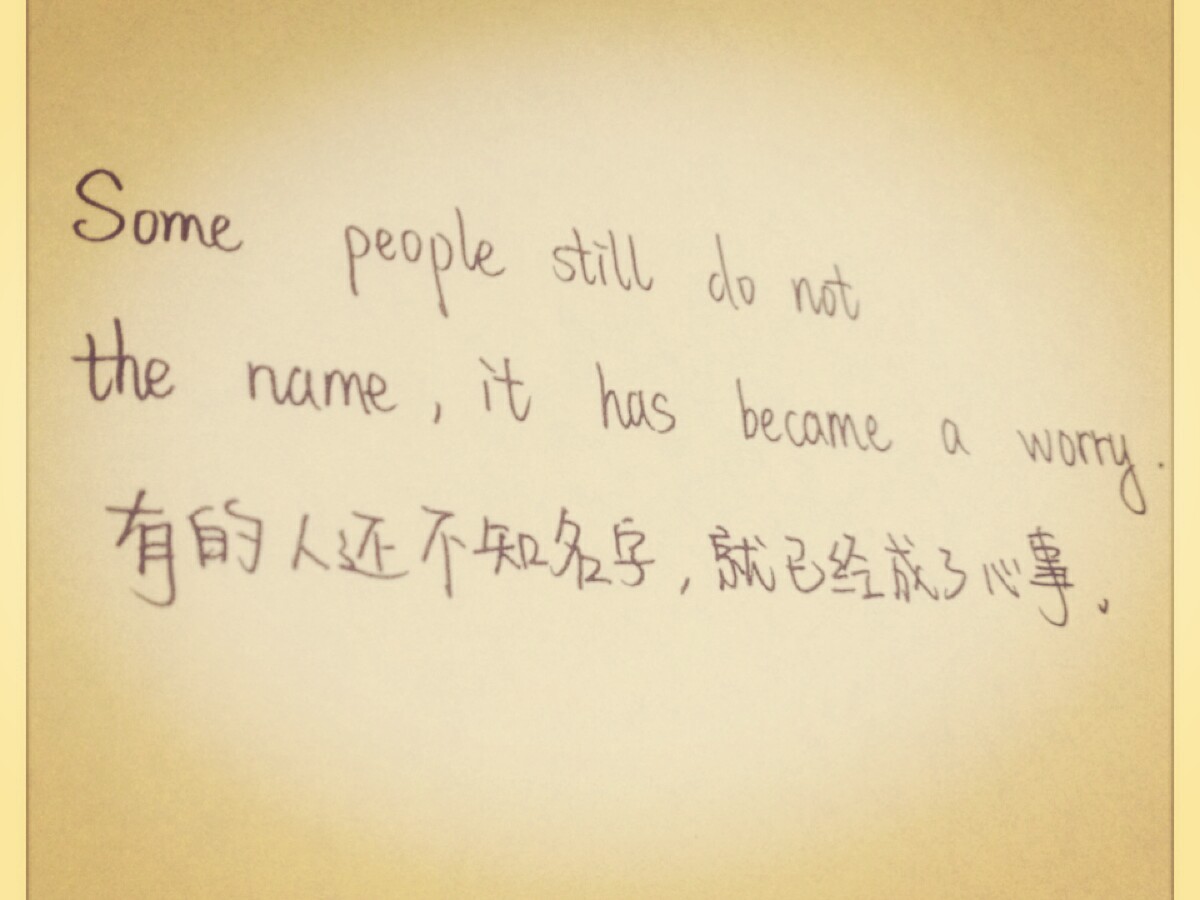 Some people still do not
the name, it has became a worry.
有的人还不知名字,就已经成了心事。